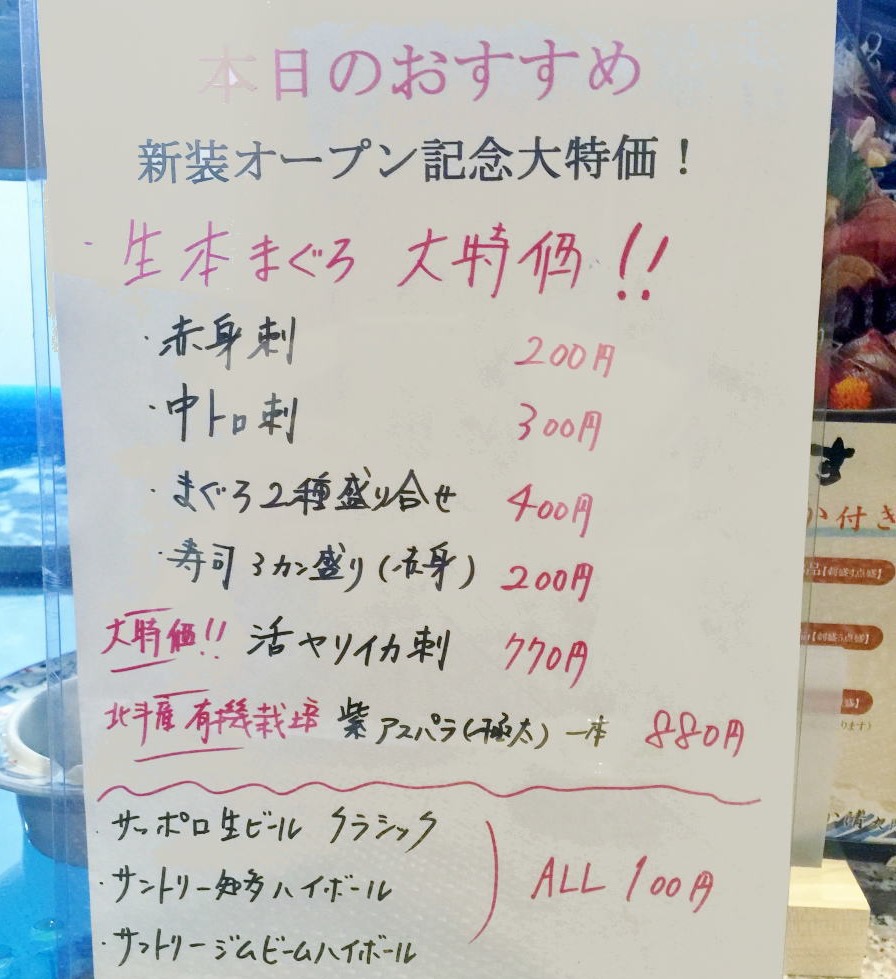 本日のおすすめ
新装オープン記念大特価！
・生本まぐろ 大特価!!
・赤身刺 200円
・中トロ刺 300円
・まぐろ2種盛り合せ 400円
・寿司3カン盛り(赤身) 200円
大特価!! 活ヤリイカ刺 770円
北斗産 有機栽培 紫アスパラ(極太)一本 880円
・サッポロ生ビール クラシック
・サントリー知多ハイボール ALL 100円
・サントリージムビームハイボール
す
付き
品【刺盛4点盛】
【刺盛5点盛】
ります)